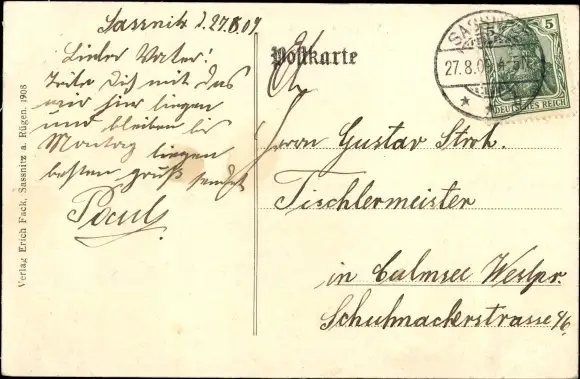 Sassnitz d. 27.8.09.
Lieber Vater!
Teile Dich mit das
wir hier liegen
und bleiben bis
Montag liegen
besten Gruß sendet
Paul
Postkarte
SASSNITZ
27.8.09. 4-5N.
5
DEUTSCHES REICH
Herrn Gustav Stroh.
Tischlermeister
in Culmsee Westpr.
Schuhmacherstrasse
Verlag Erich Fack, Sassnitz a. Rügen. 1908